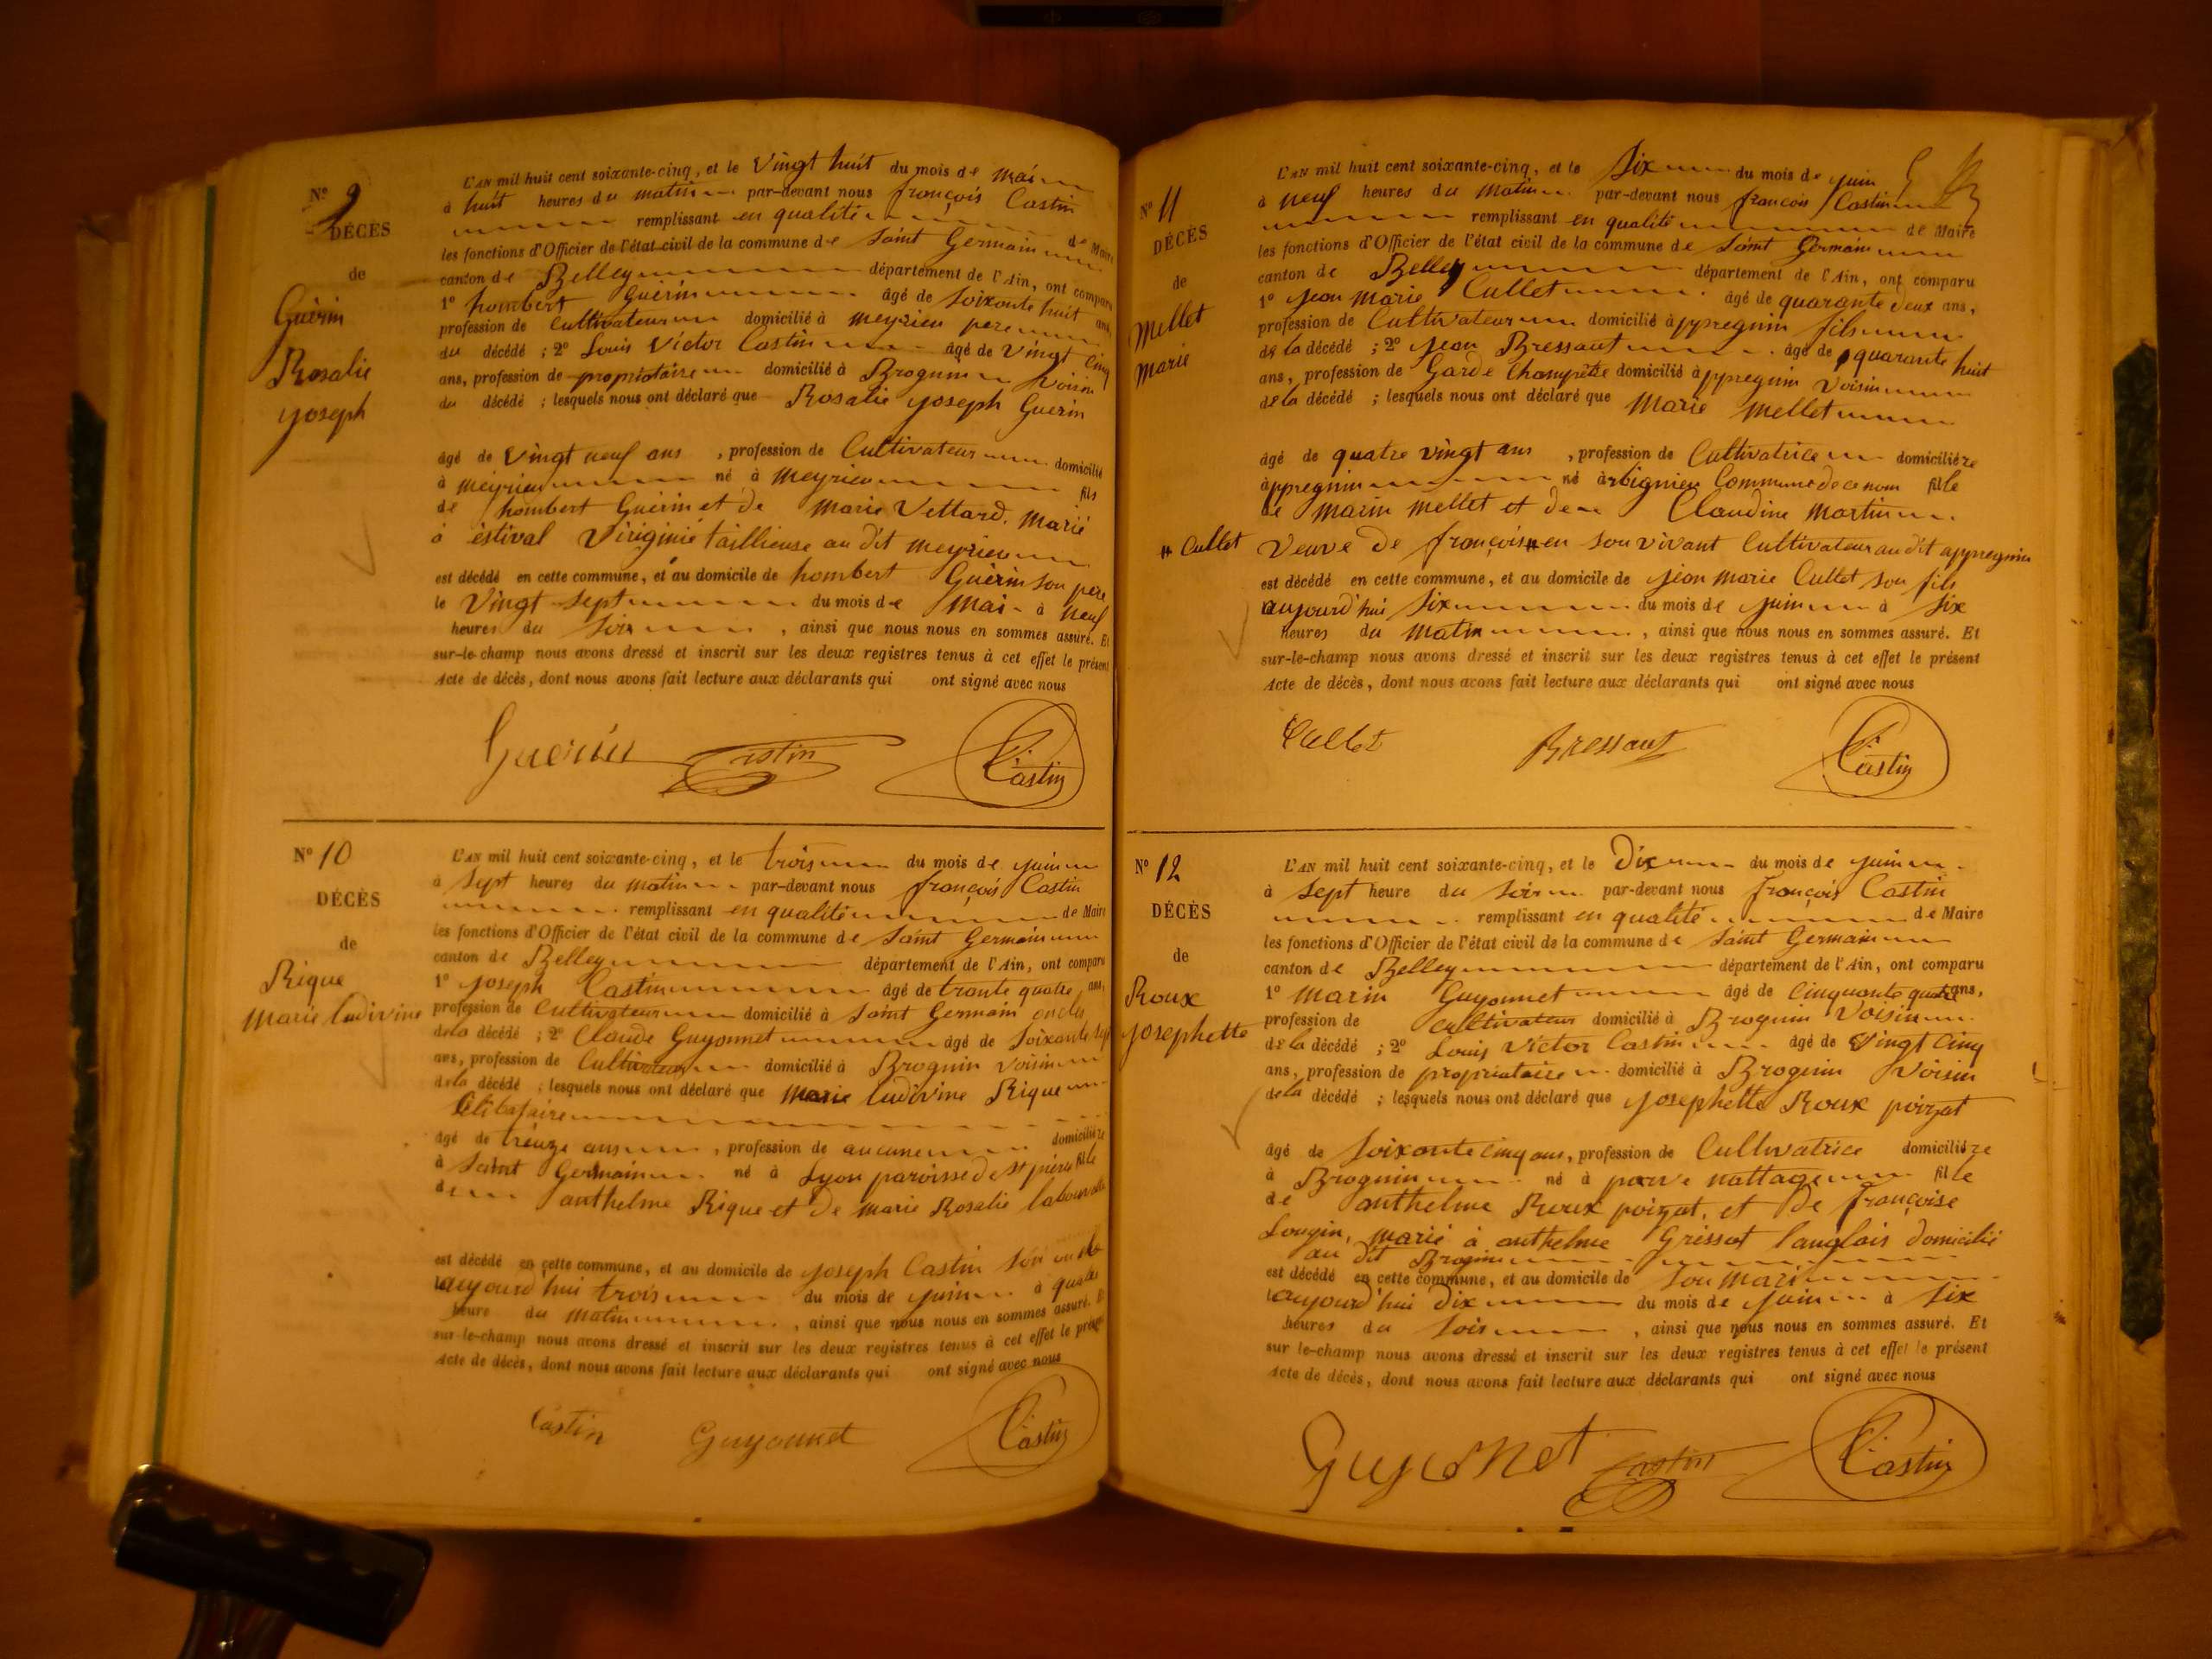 Nº 9
DÉCÈS
de
Guérin
Rosalie
Joseph
L'AN mil huit cent soixante-cinq, et le Vingt huit du mois de mai
à huit heures du matin par-devant nous françois Castin
remplissant en qualité de Maire
les fonctions d'Officier de l'état civil de la commune de Saint Germain
canton de Belley département de l'Ain, ont comparu
1º hombert Guérin âgé de Soixante huit ans,
profession de Cultivateur domicilié à meyrieu pere
du décédé ; 2º Louis Victor Castin âgé de Vingt Cinq
ans, profession de propriétaire domicilié à Brognin Voisin
du décédé ; lesquels nous ont déclaré que Rosalie Joseph Guérin
âgé de Vingt neuf ans , profession de Cultivateur domicilié
à meyrieu né à meyrieu fils
de hombert Guérin et de Marie Vettard. Marié
à éstival Viriginie taillieuse au dit meyrieu
est décédé en cette commune, et au domicile de hombert Guérin son pere
le Vingt Sept du mois de Mai à neuf
heures du Soir , ainsi que nous nous en sommes assuré. Et
sur-le-champ nous avons dressé et inscrit sur les deux registres tenus à cet effet le présent
Acte de décès, dont nous avons fait lecture aux déclarants qui ont signé avec nous
Guérin Castin Castin
Nº 10
DÉCÈS
de
Rique
Marie Ludivine
L'AN mil huit cent soixante-cinq, et le trois du mois de Juin
à Sept heures du matin par-devant nous françois Castin
remplissant en qualité de Maire
les fonctions d'Officier de l'état civil de la commune de Saint Germain
canton de Belley département de l'Ain, ont comparu
1º Joseph Castin âgé de trante quatre ans,
profession de Cultivateur domicilié à Saint Germain oncle
de la décédé ; 2º Claude Guyonnet âgé de Soixante sept
ans, profession de Cultivateur domicilié à Brognin Voisin
de la décédé ; lesquels nous ont déclaré que Marie Ludivine Rique
Célibataire
âgé de treize ans , profession de aucune domiciliée
à Saint Germain né à Lyon paroisse de St pierre fille
de anthelme Rique et de Marie Rosalie
est décédé en cette commune, et au domicile de Joseph Castin Son oncle
aujourd'hui trois du mois de Juin à quatre
heure du matin , ainsi que nous nous en sommes assuré. Et
sur-le-champ nous avons dressé et inscrit sur les deux registres tenus à cet effet le présent
Acte de décès, dont nous avons fait lecture aux déclarants qui ont signé avec nous
Castin Guyonnet Castin
Nº 11
DÉCÈS
de
Mellet
Marie
L'AN mil huit cent soixante-cinq, et le Six du mois de Juin
à neuf heures du matin par-devant nous françois Castin
remplissant en qualité de Maire
les fonctions d'Officier de l'état civil de la commune de Saint Germain
canton de Belley département de l'Ain, ont comparu
1º Jean Marie Cullet âgé de quarante deux ans,
profession de Cultivateur domicilié àppregnin fils
de la décédé ; 2º Jean Bressaut âgé de quarante huit
ans, profession de Garde Champêtre domicilié àppregnin Voisin
de la décédé ; lesquels nous ont déclaré que Marie Mellet
âgé de quatre vingt ans , profession de Cultivatrice domiciliée
àppregnin né àrbignieu Commune de ce nom fille
de Marin Mellet et de Claudine Martin
# Cullet Veuve de françois # en son vivant Cultivateur au dit appregnin
est décédé en cette commune, et au domicile de Jean Marie Cullet son fils
aujourd'hui Six du mois de Juin à Six
heures du Matin , ainsi que nous nous en sommes assuré. Et
sur-le-champ nous avons dressé et inscrit sur les deux registres tenus à cet effet le présent
Acte de décès, dont nous avons fait lecture aux déclarants qui ont signé avec nous
Cullet Bressaut Castin
Nº 12
DÉCÈS
de
Roux
Josephette
L'AN mil huit cent soixante-cinq, et le Dix du mois de Juin
à Sept heure du Soir par-devant nous françois Castin
remplissant en qualité de Maire
les fonctions d'Officier de l'état civil de la commune de Saint Germain
canton de Belley département de l'Ain, ont comparu
1º Marin Guyonnet âgé de Cinquante quatre ans,
profession de Cultivateur domicilié à Brognin Voisin
de la décédé ; 2º Louis Victor Castin âgé de Vingt Cinq
ans, profession de propriétaire domicilié à Brognin Voisin
de la décédé ; lesquels nous ont déclaré que Josephette Roux poizat
âgé de Soixante Cinq ans, profession de Cultivatrice domiciliée
à Brognin né à nattage fille
de anthelme Roux poizat, et de françoise
Lougin, marié à anthelme Grissot Langlois domicilié
au dit Brognin
est décédé en cette commune, et au domicile de Son Mari
aujourd'hui dix du mois de Juin à Six
heures du Soir , ainsi que nous nous en sommes assuré. Et
sur le-champ nous avons dressé et inscrit sur les deux registres tenus à cet effet le présent
Acte de décès, dont nous avons fait lecture aux déclarants qui ont signé avec nous
Guyonnet Castin Castin